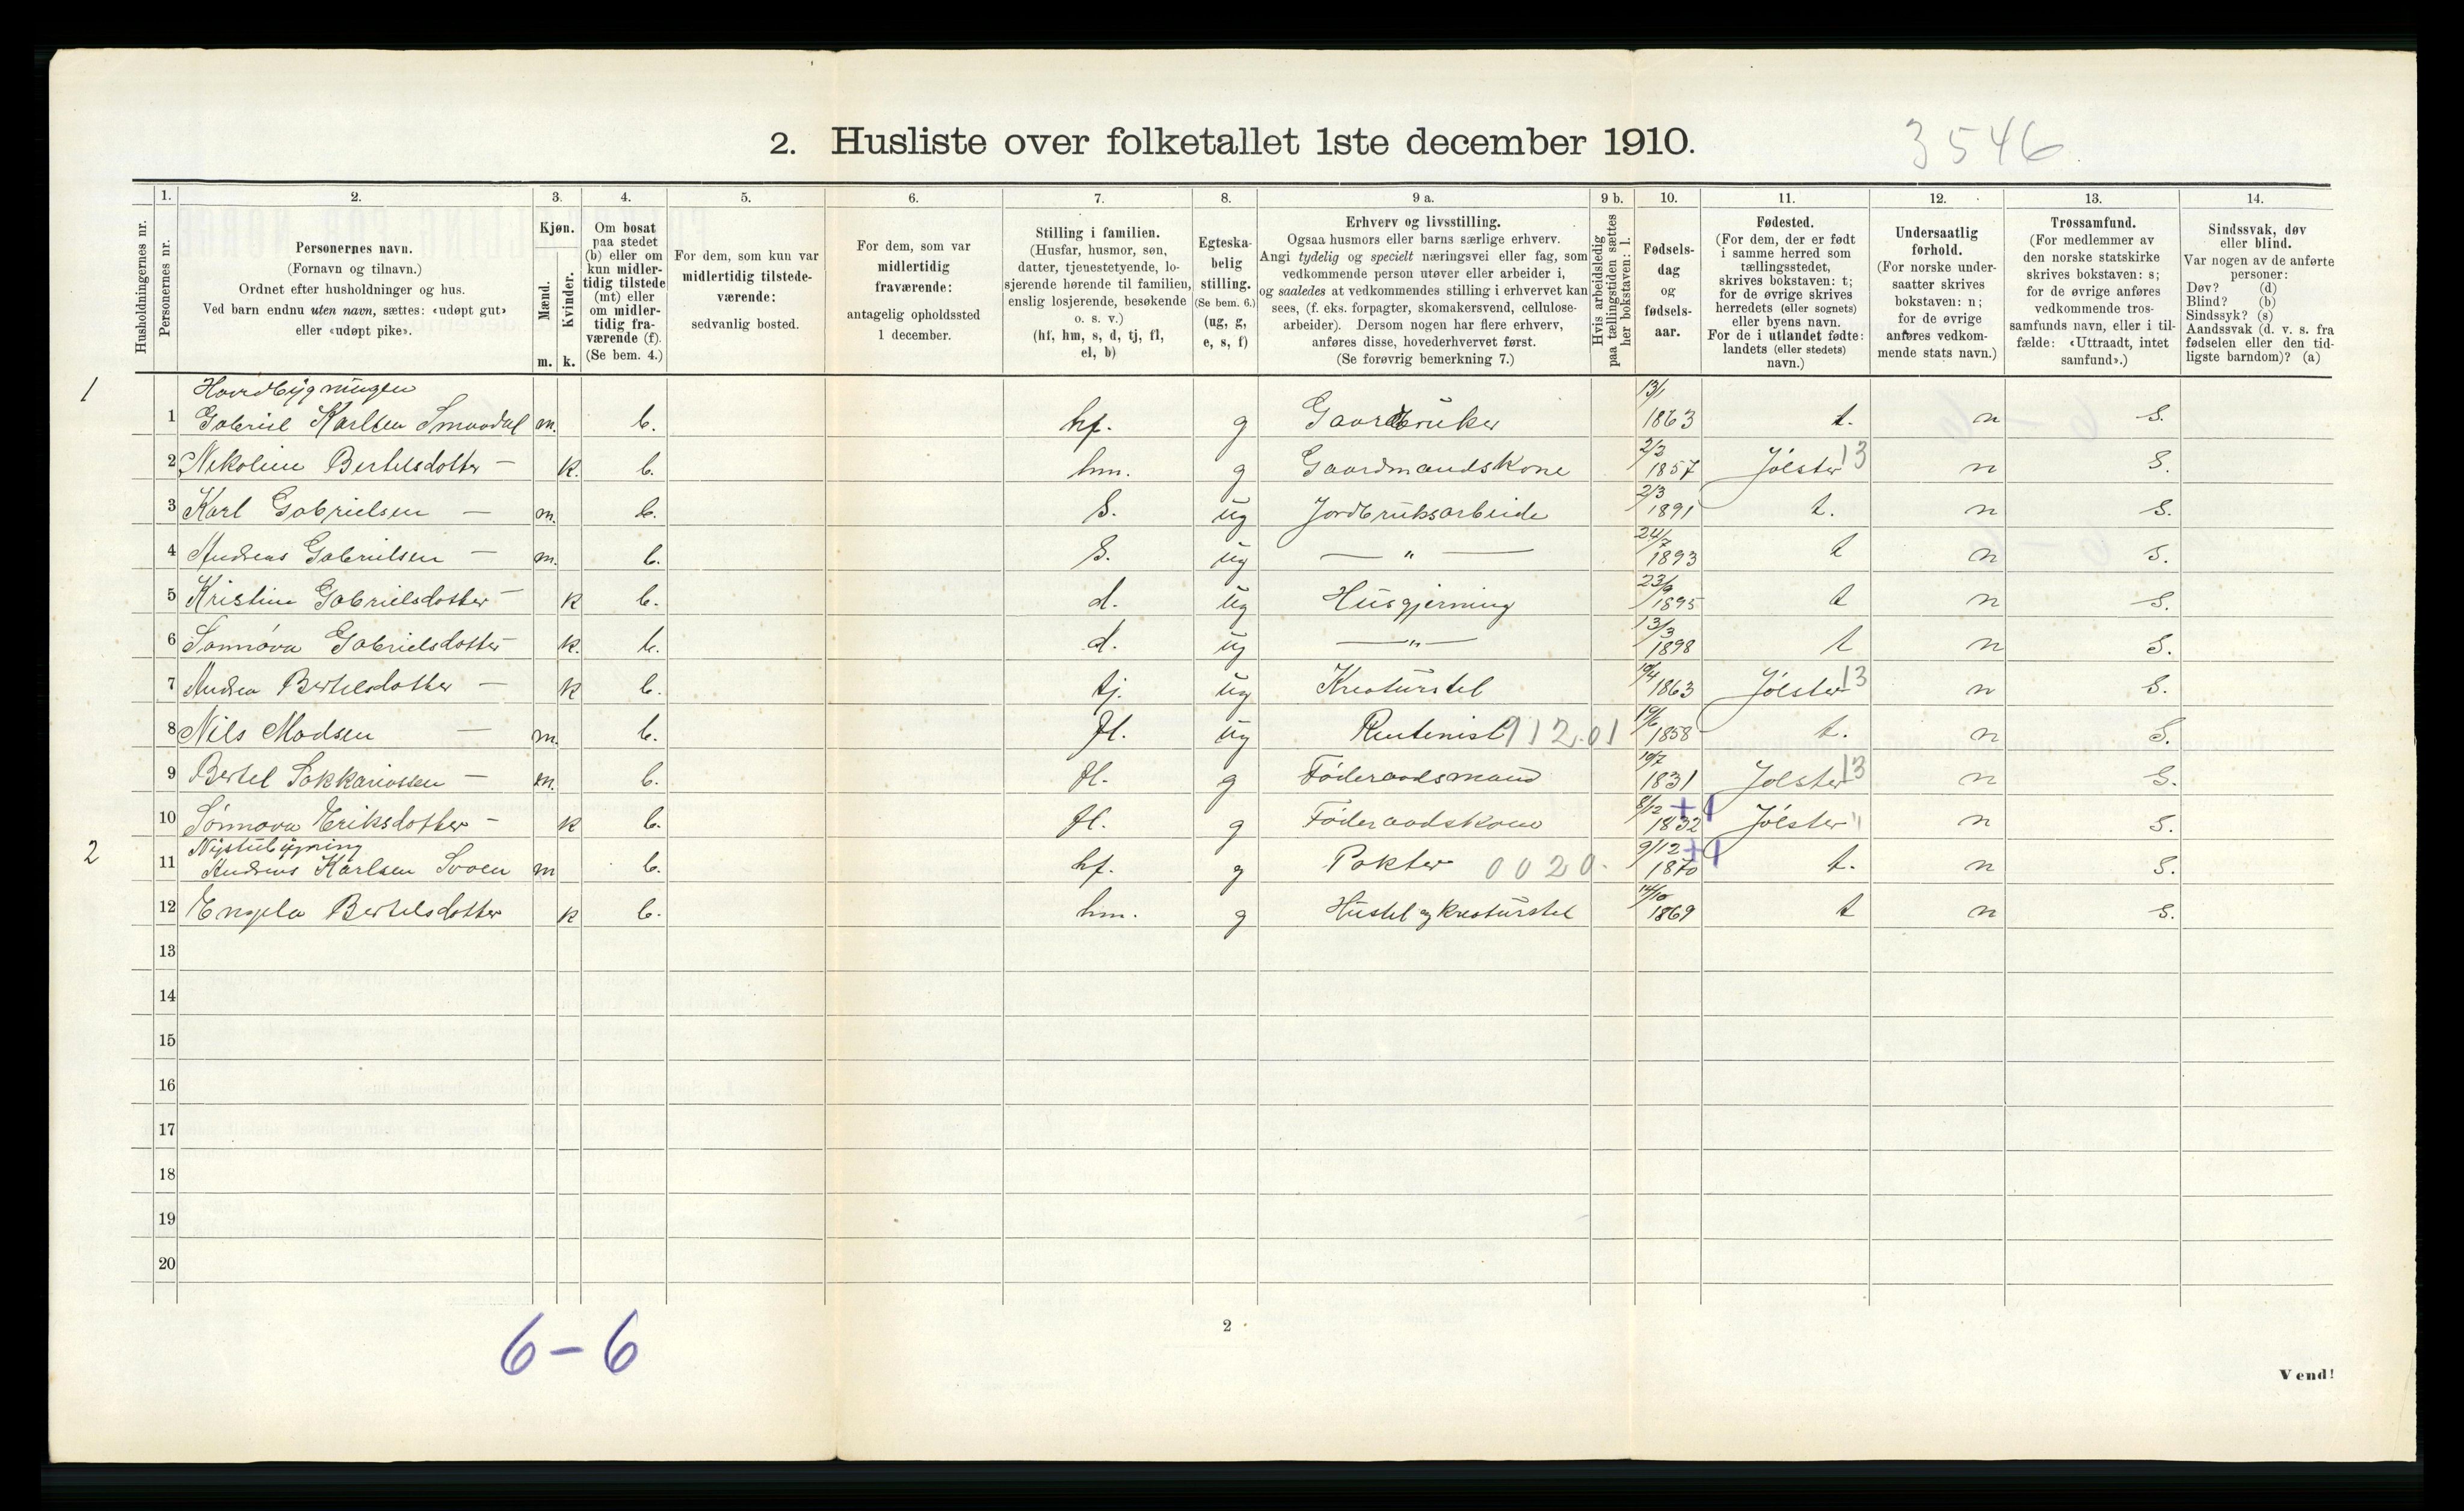 2. Husliste over folketallet 1ste december 1910.
3546
1. 2. 3. 4. 5. 6. 7. 8. 9 a. 9 b. 10. 11. 12. 13. 14.
Husholdningernes nr.
Personernes nr.
Personernes navn.
(Fornavn og tilnavn.)
Ordnet efter husholdninger og hus.
Ved barn endnu uten navn, sættes: «udøpt gut»
eller «udøpt pike».
Kjøn.
Mænd.
Kvinder.
m. k.
Om bosat
paa stedet
(b) eller om
kun midler-
tidig tilstede
(mt) eller
om midler-
tidig fra-
værende (f).
(Se bem. 4.)
For dem, som kun var
midlertidig tilstede-
værende:
sedvanlig bosted.
For dem, som var
midlertidig
fraværende:
antagelig opholdssted
1 december.
Stilling i familien.
(Husfar, husmor, søn,
datter, tjenestetyende, lo-
sjerende hørende til familien,
enslig losjerende, besøkende
o. s. v.)
(hf, hm, s, d, tj, fl,
el, b)
Egteska-
belig
stilling.
(Se bem. 6.)
(ug, g,
e, s, f)
Erhverv og livsstilling.
Ogsaa husmors eller barns særlige erhverv.
Angi tydelig og specielt næringsvei eller fag, som
vedkommende person utøver eller arbeider i,
og saaledes at vedkommendes stilling i erhvervet kan
sees, (f. eks. forpagter, skomakersvend, cellulose-
arbeider). Dersom nogen har flere erhverv,
anføres disse, hovederhvervet først.
(Se forøvrig bemerkning 7.)
Hvis arbeidsledig
paa tællingstiden sættes
her bokstaven: l.
Fødsels-
dag
og
fødsels-
aar.
Fødested.
(For dem, der er født
i samme herred som
tællingsstedet,
skrives bokstaven: t;
for de øvrige skrives
herredets (eller sognets)
eller byens navn.
For de i utlandet fødte:
landets (eller stedets)
navn.)
Undersaatlig
forhold.
(For norske under-
saatter skrives
bokstaven: n;
for de øvrige
anføres vedkom-
mende stats navn.)
Trossamfund.
(For medlemmer av
den norske statskirke
skrives bokstaven: s;
for de øvrige anføres
vedkommende tros-
samfunds navn, eller i til-
fælde: «Uttraadt, intet
samfund».)
Sindssvak, døv
eller blind.
Var nogen av de anførte
personer:
Døv? (d)
Blind? (b)
Sindssyk? (s)
Aandssvak (d. v. s. fra
fødselen eller den tid-
ligste barndom)? (a)
1 Hovedbygningen
1 Gabriel Karlsen Smaadal m. b. hf. g Gaardbruker 13/1 1863 t. n S.
2 Nikoline Bertelsdotter — k. b. hm. g Gaardmandskone 2/2 1857 Jølster 13 n S.
3 Karl Gabrielsen — m. b. S. ug Jordbruksarbeide 2/3 1891 t. n S.
4 Andreas Gabrielsen — m. b. S. ug — " — 24/7 1893 t n S.
5 Kristine Gabrielsdotter — k b. d. ug Husgjerning 23/9 1895 t n S.
6 Sønnøva Gabrielsdotter — k. b. d. ug — " — 13/3 1898 t n S.
7 Andrea Bertelsdotter — k b. tj. ug Kreaturstel 19/4 1863 Jølster 13 n S.
8 Nils Madsen — m. b. fl. ug Rentenist 912.01 19/6 1858 t. n S.
9 Bertel Sakkariassen — m. b. fl. g Føderaadsmand 19/7 1831 Jølster 13 n S.
10 Sønnøva Eriksdotter — k b. fl. g Føderaadskone 8/12 +1 1832 Jølster " n S.
2 Nystubygning
11 Andreas Karlsen Svoen m b. hf. g Pakter 0020. 9/12 +1 1870 t. n S.
12 Engela Bertelsdotter k b. hm. g Hustel og kreaturstel 14/10 1869 t n S.
13
14
15
16
17
18
19
20
6-6
2
Vend!